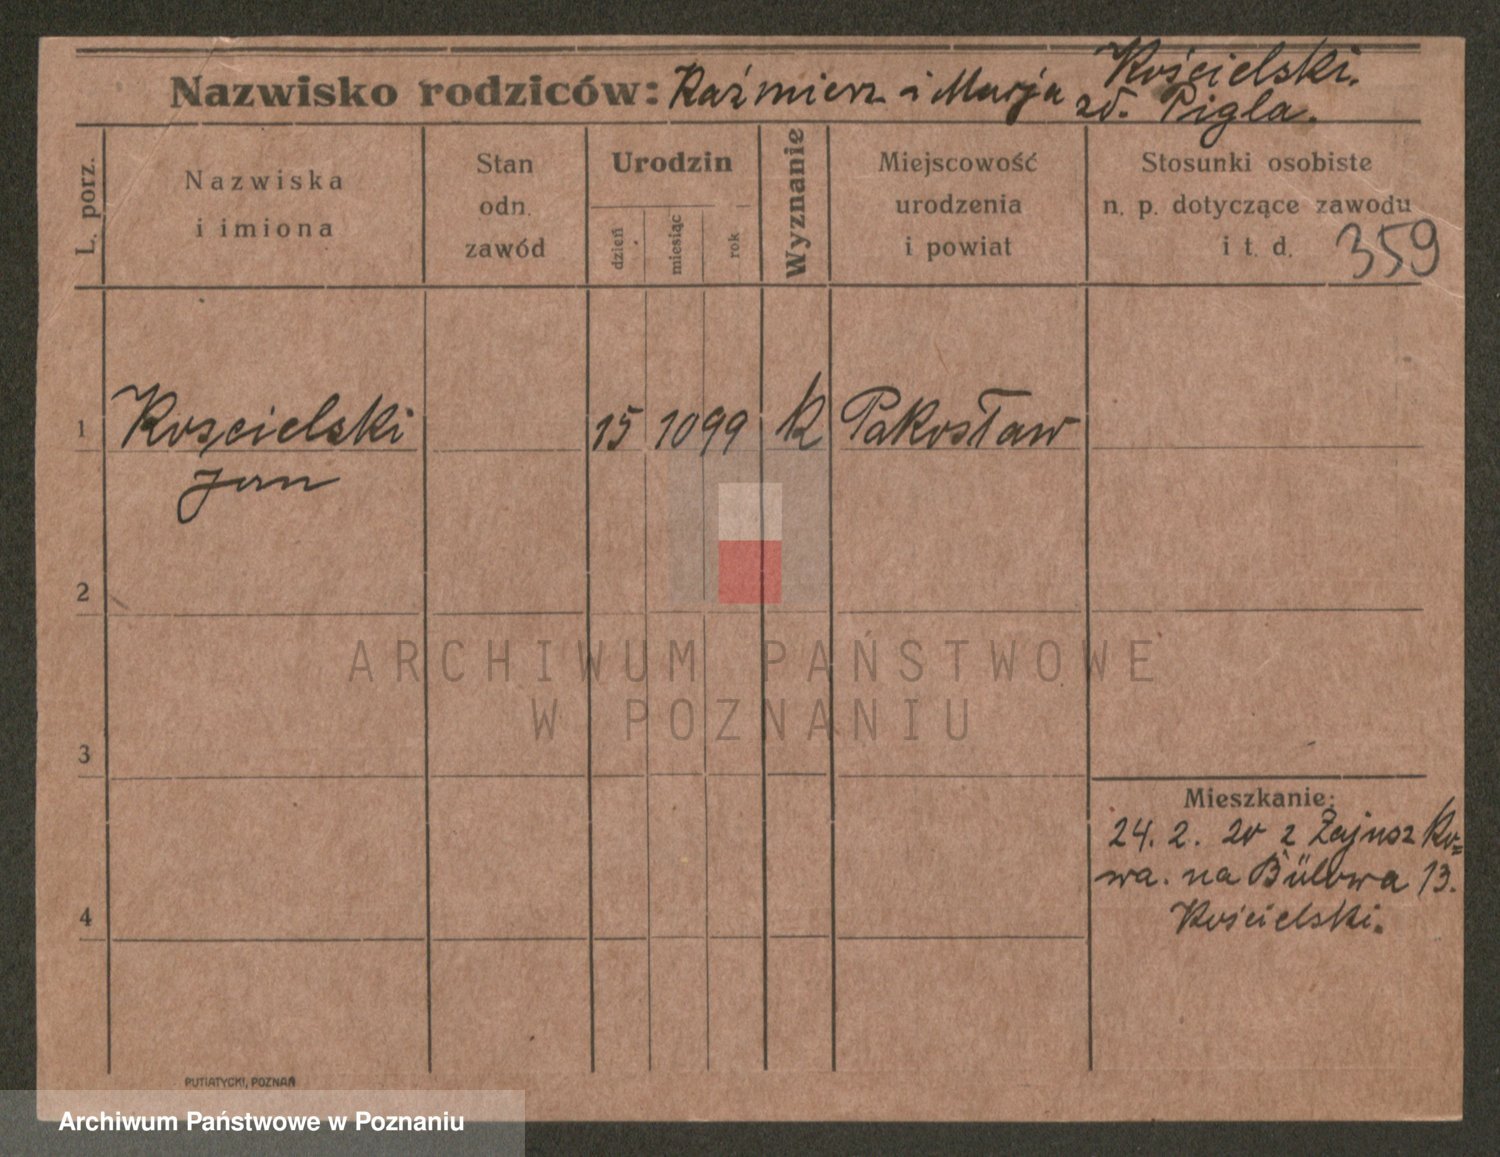 Nazwisko rodziców: Kaźmierz i Marja Kościelski.
zd. Pigla.
L. porz.
Nazwiska
i imiona
Stan
odn.
zawód
Urodzin
dzień
miesiąc
rok
Wyznanie
Miejscowość
urodzenia
i powiat
Stosunki osobiste
n. p. dotyczące zawodu
i t. d.
359
1 Kościelski 15 10 99 k Pakosław
Jan
2
3
4
Mieszkanie:
24. 2. 20 z Żajusz Ko=
wa. na Bülowa 13.
Kościelski.
PUTIATYCKI, POZNAŃ
ARCHIWUM PAŃSTWOWE
W POZNANIU
Archiwum Państwowe w Poznaniu